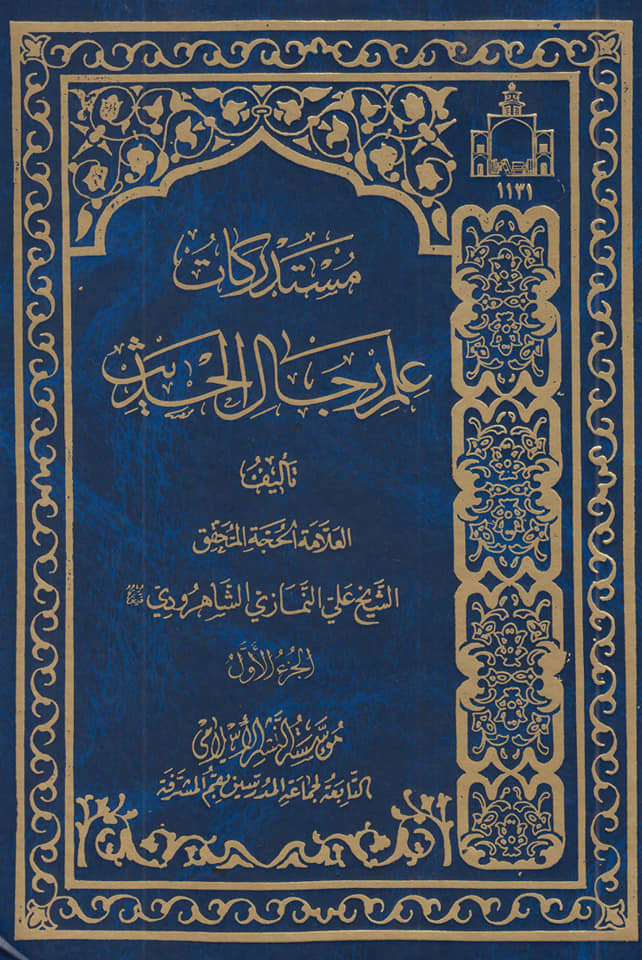 ١١٣١
مُسْتَدْرَكَاتُ
عِلْمِ رِجَالِ الْحَدِيثِ
تَأليفُ
العَلّامَة الحُجَّة المُحَقِّق
الشَّيخ عَلي النَّمازي الشَّاهرُودي
الجُزءُ الأَوَّلُ
مُؤسَّسَةُ النَّشْرِ الإِسْلَامِي
التَّابِعَةُ لِجَمَاعَةِ المُدَرِّسِينَ بِقُمِ المُشَرَّفَةِ